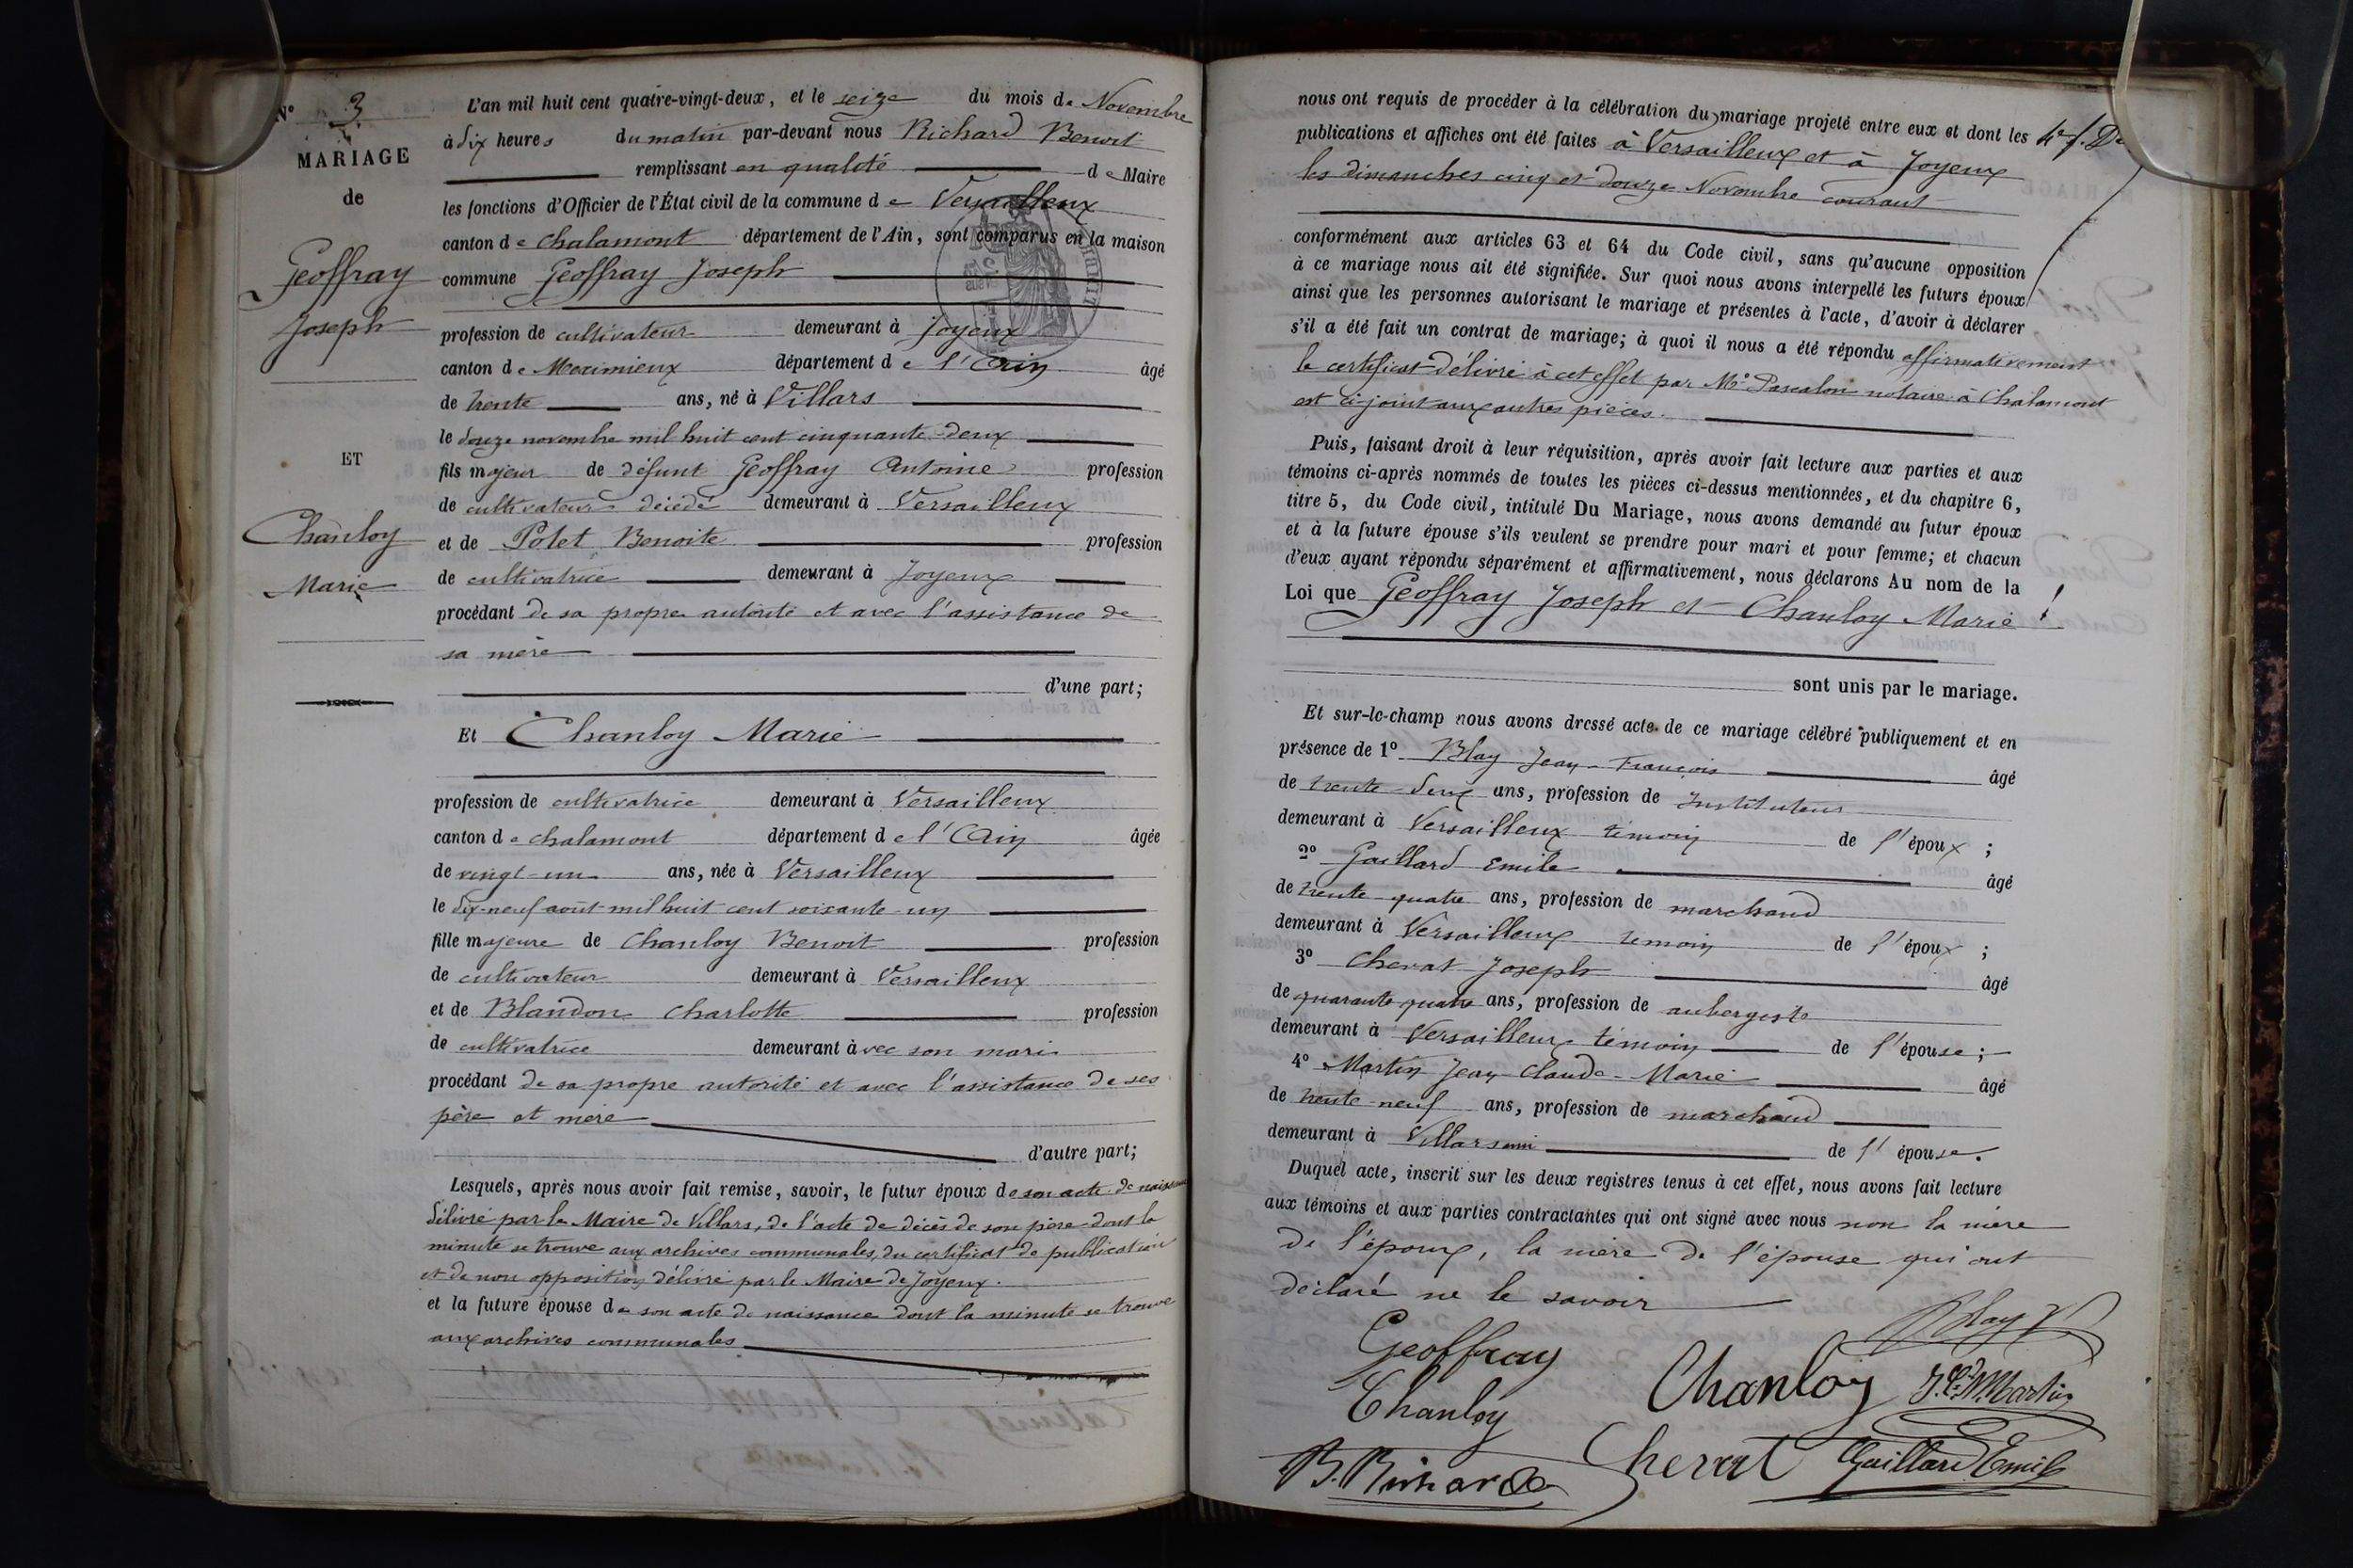 N° 3
MARIAGE
de
Geoffray
Joseph
ET
Chanloy
Marie
L'an mil huit cent quatre-vingt-deux, et le seize du mois de Novembre
à dix heures du matin par-devant nous Richard Benoit
remplissant en qualité de Maire
les fonctions d'Officier de l'État civil de la commune de Versailleux
canton de Chalamont département de l'Ain, sont comparus en la maison
commune Geoffray Joseph
profession de cultivateur demeurant à Joyeux
canton de Meximieux département de l'Ain âgé
de trente ans, né à Villars
le douze novembre mil huit cent cinquante-deux
fils majeur de défunt Geoffray Antoine profession
de cultivateur décédé demeurant à Versailleux
et de Polet Benoite profession
de cultivatrice demeurant à Joyeux
procédant de sa propre autorité et avec l'assistance de
sa mère
d'une part;
Et Chanloy Marie
profession de cultivatrice demeurant à Versailleux
canton de chalamont département de l'Ain âgée
de vingt-un ans, née à Versailleux
le dix-neuf août mil huit cent soixante-un
fille majeure de Chanloy Benoit profession
de cultivateur demeurant à Versailleux
et de Blandon Charlotte profession
de cultivatrice demeurant avec son mari
procédant de sa propre autorité et avec l'assistance de ses
père et mère
d'autre part;
Lesquels, après nous avoir fait remise, savoir, le futur époux de son acte de naissance
délivré par le Maire de Villars, de l'acte de décès de son père dont la
minute se trouve aux archives communales, du certificat de publication
et de non opposition délivré par le Maire de Joyeux.
et la future épouse de son acte de naissance dont la minute se trouve
aux archives communales
nous ont requis de procéder à la célébration du mariage projeté entre eux et dont les
publications et affiches ont été faites à Versailleux et à Joyeux
les dimanches cinq et douze Novembre courant
conformément aux articles 63 et 64 du Code civil, sans qu'aucune opposition
à ce mariage nous ait été signifiée. Sur quoi nous avons interpellé les futurs époux
ainsi que les personnes autorisant le mariage et présentes à l'acte, d'avoir à déclarer
s'il a été fait un contrat de mariage; à quoi il nous a été répondu affirmativement
le certificat délivré à cet effet par Me Pascalon notaire à Chalamont
est ci-joint aux autres pièces.
Puis, faisant droit à leur réquisition, après avoir fait lecture aux parties et aux
témoins ci-après nommés de toutes les pièces ci-dessus mentionnées, et du chapitre 6,
titre 5, du Code civil, intitulé Du Mariage, nous avons demandé au futur époux
et à la future épouse s'ils veulent se prendre pour mari et pour femme; et chacun
d'eux ayant répondu séparément et affirmativement, nous déclarons Au nom de la
Loi que Geoffray Joseph et Chanloy Marie
sont unis par le mariage.
Et sur-le-champ nous avons dressé acte de ce mariage célébré publiquement et en
présence de 1° Blay Jean-François âgé
de trente-deux ans, profession de Instituteur
demeurant à Versailleux témoin de l'époux ;
2° Gaillard Emile âgé
de trente-quatre ans, profession de marchand
demeurant à Versailleux témoin de l'époux ;
3° Cherat Joseph âgé
de quarante-quatre ans, profession de aubergiste
demeurant à Versailleux témoin de l'épouse ;
4° Martin Jean-Claude-Marie âgé
de trente-neuf ans, profession de marchand
demeurant à Villars de l'épouse.
Duquel acte, inscrit sur les deux registres tenus à cet effet, nous avons fait lecture
aux témoins et aux parties contractantes qui ont signé avec nous non la mère
de l'époux, la mère de l'épouse qui ont
déclaré ne le savoir
Blay
Geoffray
Chanloy Martin
Chanloy
B. Richard Cherat Gaillard Emile